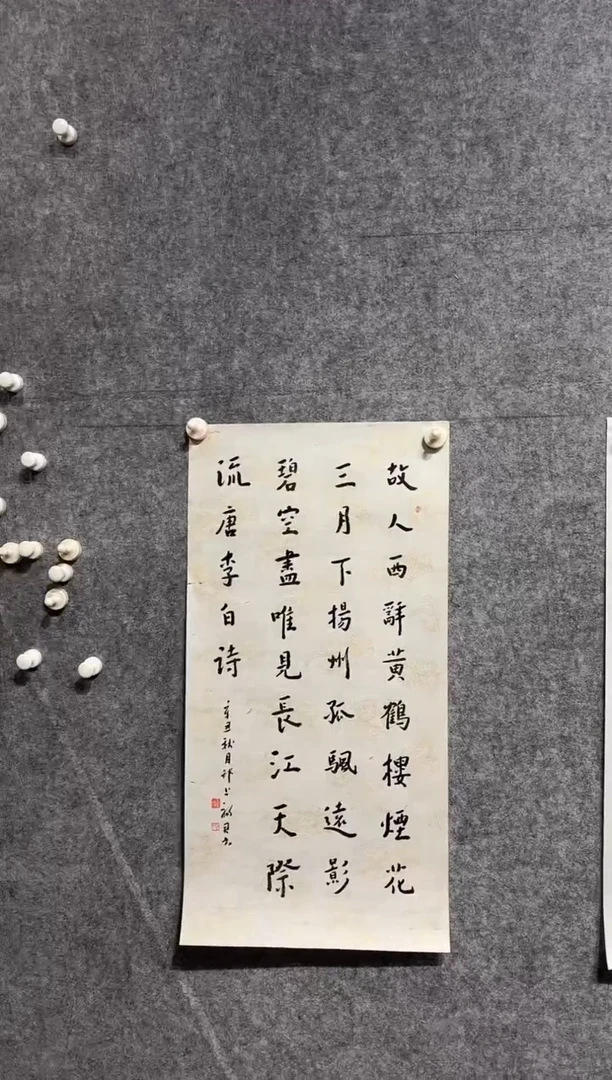 故人西辭黃鶴樓煙花
三月下揚州孤颿遠影
碧空盡唯見長江天際
流唐李白詩
辛丑秋月邗上